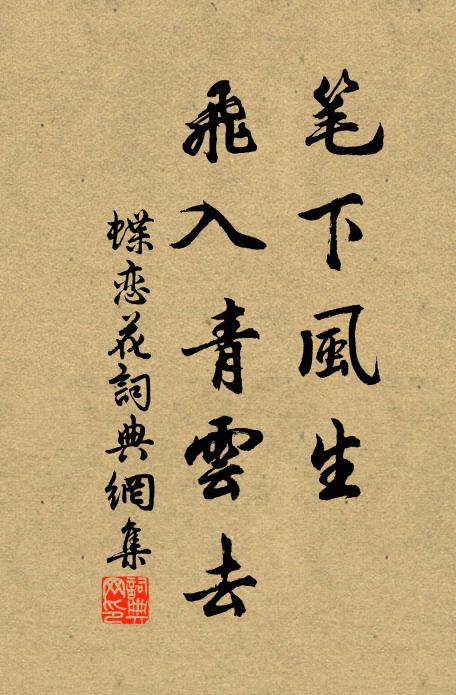 笔下風生
飛入青雲去
蝶恋花詞典網集
詞典網印